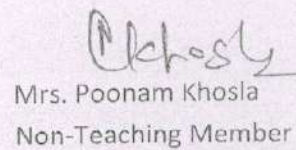 PKhosla
Mrs. Poonam Khosla
Non-Teaching Member